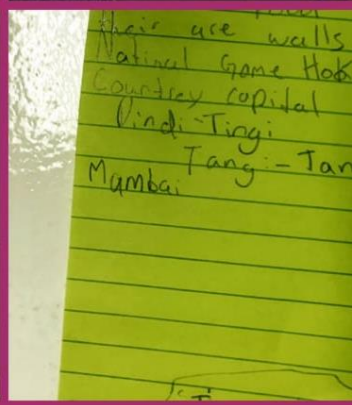 their are walls
Natinal Game Hok
Countrey copital
Pindi-Tingi
Tang:-Tan
Mambai